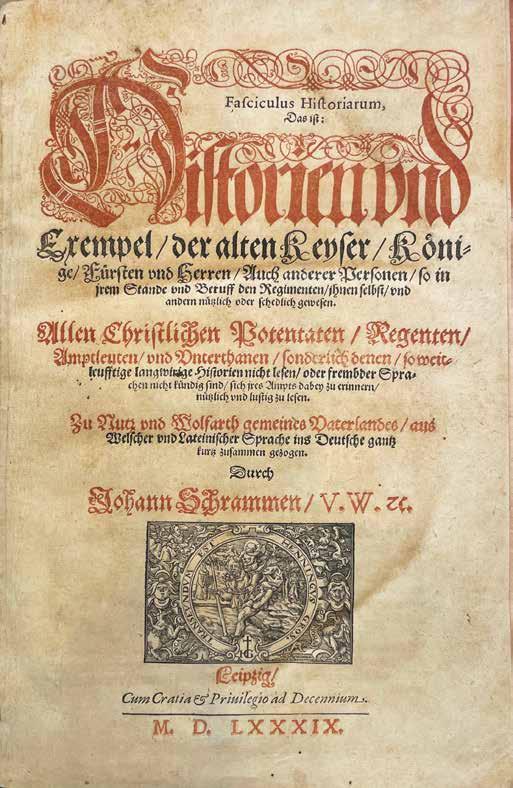 Fasciculus Historiarum,
Das ist:
Historien vnd
Exempel / der alten Keyser / Köni-
ge / Fürsten vnd Herren / Auch anderer Personen / so in
jrem Stande vnd Beruff den Regimenten / ihnen selbst / vnd
andern nützlich oder schedlich gewesen.
Allen Christlichen Potentaten / Regenten /
Amptleuten / vnd Vnterthanen / sonderlich denen / so weit-
leufftige langwirige Historien nicht lesen / oder frembder Spra-
chen nicht kündig sind / sich jres Ampts dabey zu erinnern /
nützlich vnd lustig zu lesen.
Zu Nutz vnd Wolfarth gemeines Vaterlandes / aus
Welscher vnd Lateinischer Sprache ins Deutsche gantz
kurtz zusammen gezogen.
Durch
Johann Schrammen / V. W. ꝛc.
HENNINGVS GROS
HG
Leipzig /
Cum Gratia & Priuilegio ad Decennium.
M. D. LXXXIX.